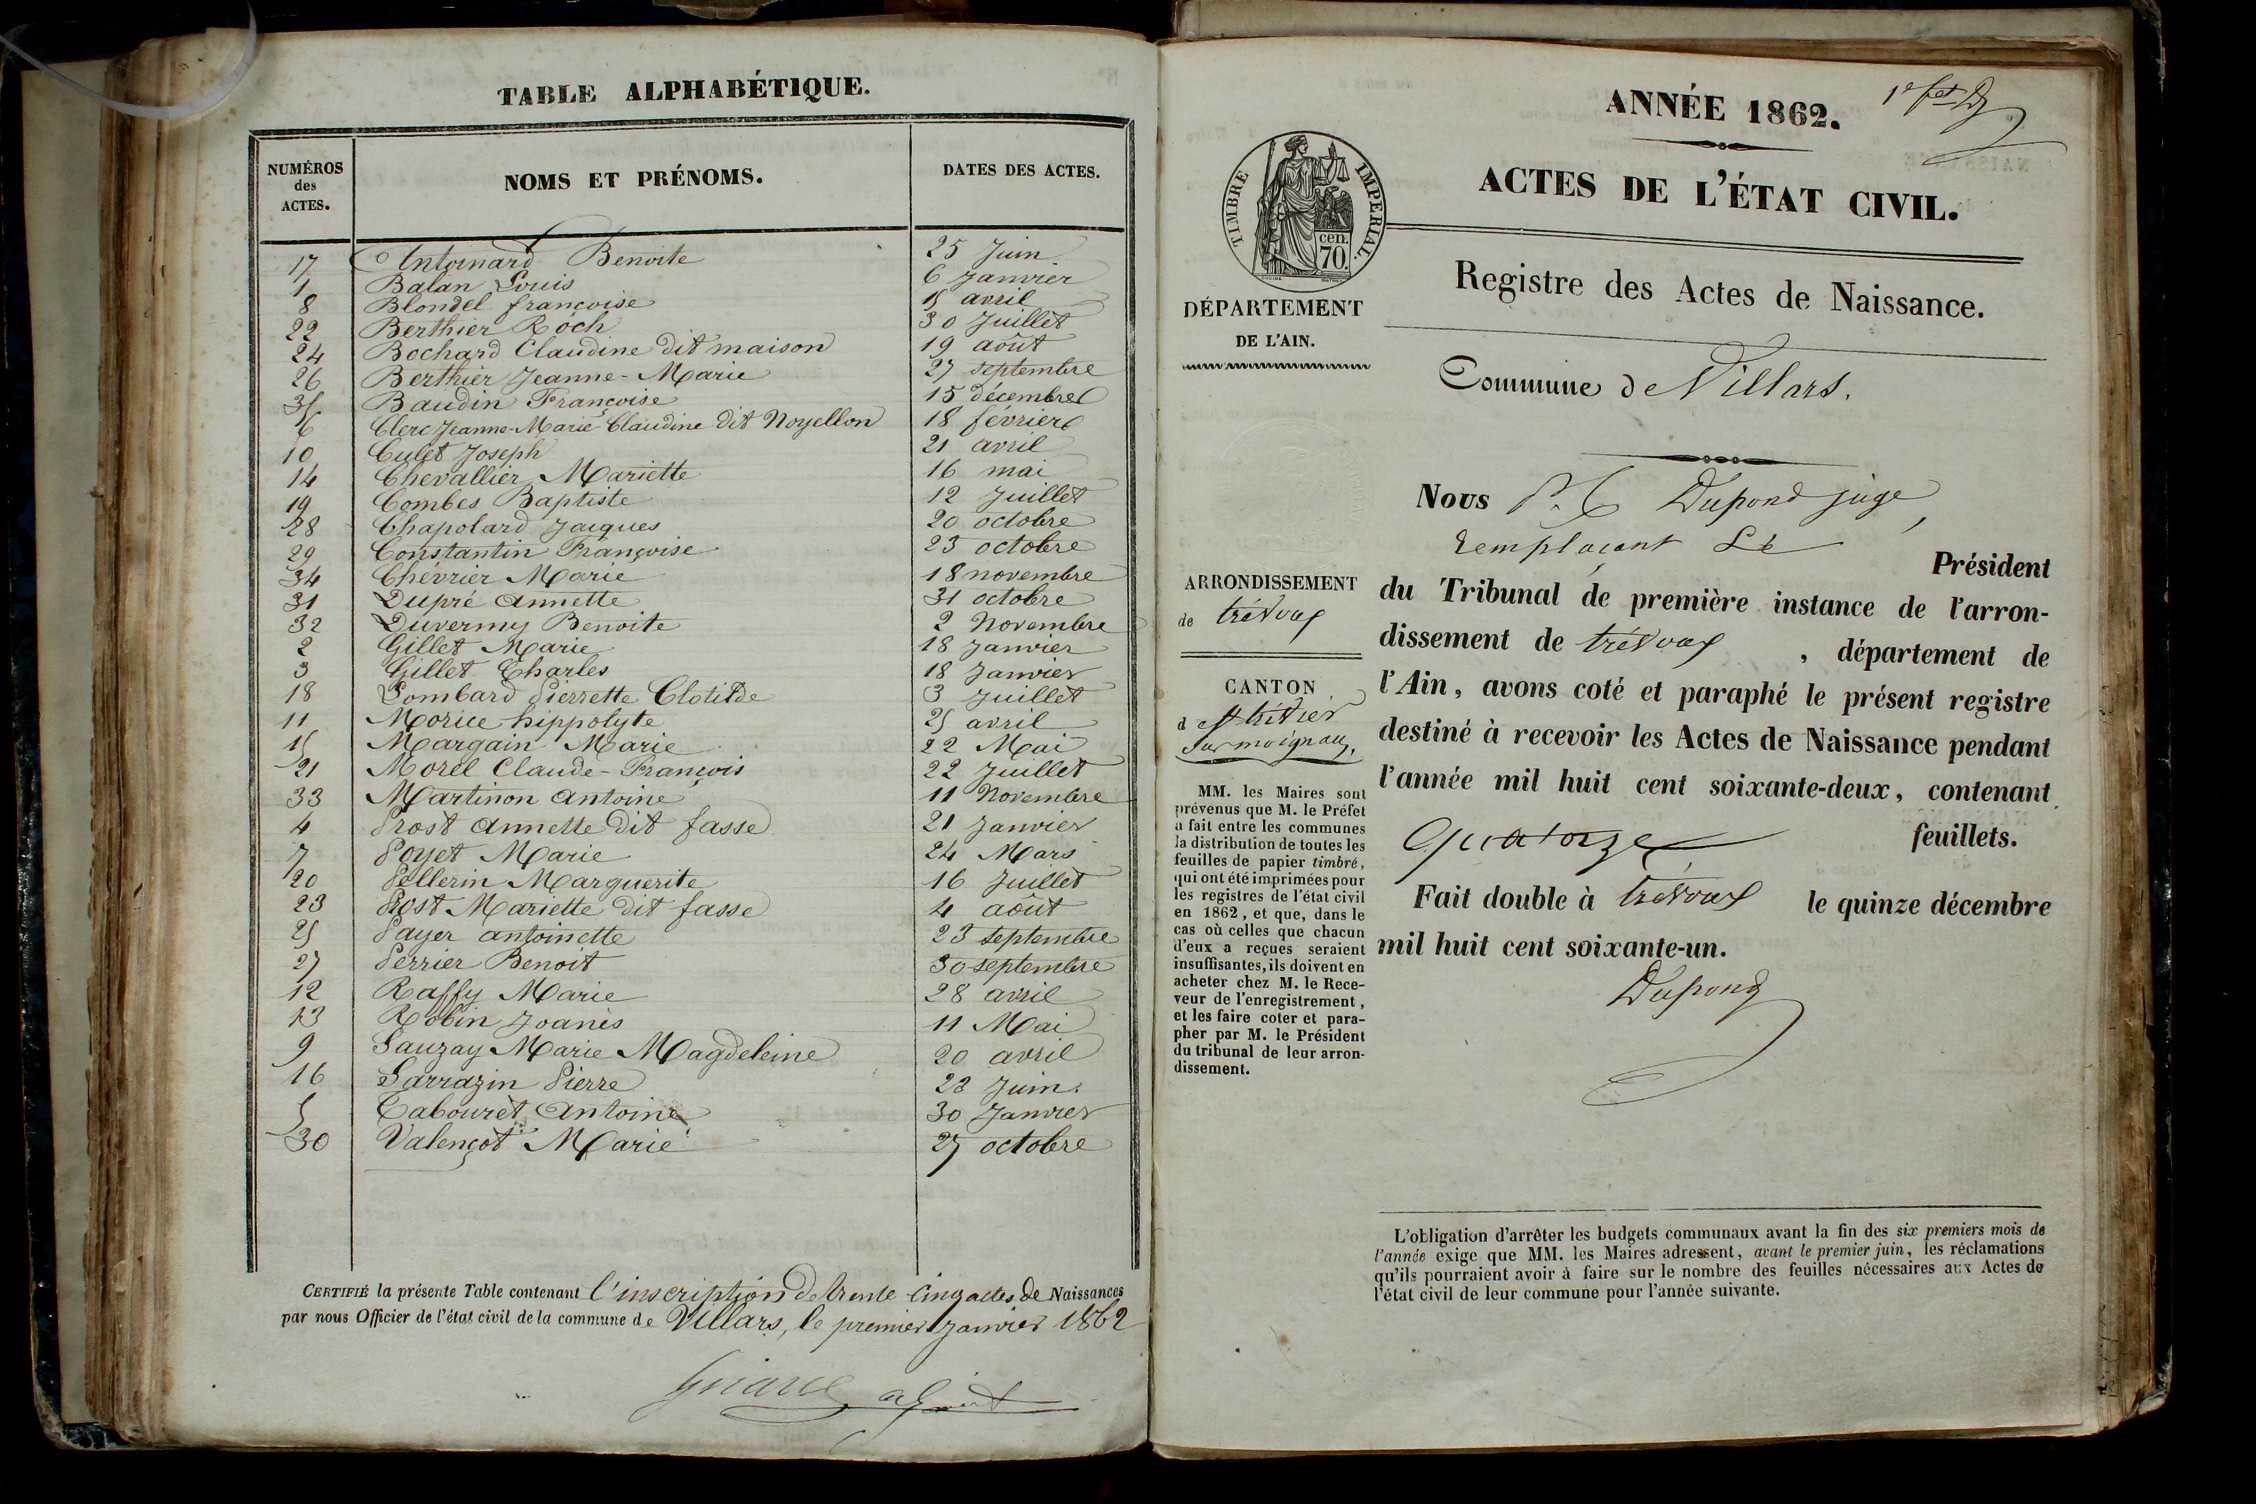 TABLE ALPHABÉTIQUE.
NUMÉROS des ACTES. NOMS ET PRÉNOMS. DATES DES ACTES.
17 Antoinard Benoite 25 Juin
1 Balan Louis 6 Janvier
8 Blondel françoise 15 avril
22 Berthier Roch 30 Juillet
24 Bochard Claudine dit maison 19 août
26 Berthier Jeanne-Marie 27 septembre
35 Baudin Françoise 15 décembre
6 Clerc Jeanne-Marie Claudine dit Noyellon 18 février
10 Culet Joseph 21 avril
14 Chevallier Mariette 16 mai
19 Combes Baptiste 12 Juillet
28 Chapolard Jacques 20 octobre
29 Constantin Françoise 23 octobre
34 Chévrier Marie 18 novembre
31 Dupré Annette 31 octobre
32 Duvermy Benoite 2 Novembre
2 Gillet Marie 18 Janvier
3 Gillet Charles 18 Janvier
18 Lombard Pierrette Clotilde 3 Juillet
11 Morice hippolyte 25 avril
15 Margain Marie 22 Mai
21 Morel Claude-François 22 Juillet
33 Martinon antoine 11 Novembre
4 Prost annette dit fasse 21 Janvier
7 Poyet Marie 24 Mars
20 Pellerin Marguerite 16 Juillet
23 Prost Mariette dit fasse 4 août
25 Payer antoinette 23 septembre
27 Perrier Benoit 30 septembre
12 Raffy Marie 28 avril
13 Robin Joanès 11 Mai
9 Sauzay Marie Magdeleine 20 avril
16 Sarrazin Pierre 23 Juin
5 Tabouret Antoine 30 Janvier
30 Valençot Marie 27 octobre
CERTIFIÉ la présente Table contenant l'inscription de trente cinq actes de Naissances
par nous Officier de l'état civil de la commune de Villars, le premier Janvier 1862
adjoint
ANNÉE 1862.
ACTES DE L'ÉTAT CIVIL.
TIMBRE IMPERIAL.
cen.
70.
DÉPARTEMENT
DE L'AIN.
Registre des Actes de Naissance.
Commune de Villars.
ARRONDISSEMENT
de trévoux
CANTON
de St trivier
Sur moignans,
MM. les Maires sont
prévenus que M. le Préfet
a fait entre les communes
la distribution de toutes les
feuilles de papier timbré,
qui ont été imprimées pour
les registres de l'état civil
en 1862, et que, dans le
cas où celles que chacun
d'eux a reçues seraient
insuffisantes, ils doivent en
acheter chez M. le Rece-
veur de l'enregistrement,
et les faire coter et para-
pher par M. le Président
du tribunal de leur arron-
dissement.
Nous Dupond juge,
remplaçant Le Président
du Tribunal de première instance de l'arron-
dissement de trévoux, département de
l'Ain, avons coté et paraphé le présent registre
destiné à recevoir les Actes de Naissance pendant
l'année mil huit cent soixante-deux, contenant
quatorze feuillets.
Fait double à trévoux le quinze décembre
mil huit cent soixante-un.
Dupond
L'obligation d'arrêter les budgets communaux avant la fin des six premiers mois de
l'année exige que MM. les Maires adressent, avant le premier juin, les réclamations
qu'ils pourraient avoir à faire sur le nombre des feuilles nécessaires aux Actes de
l'état civil de leur commune pour l'année suivante.